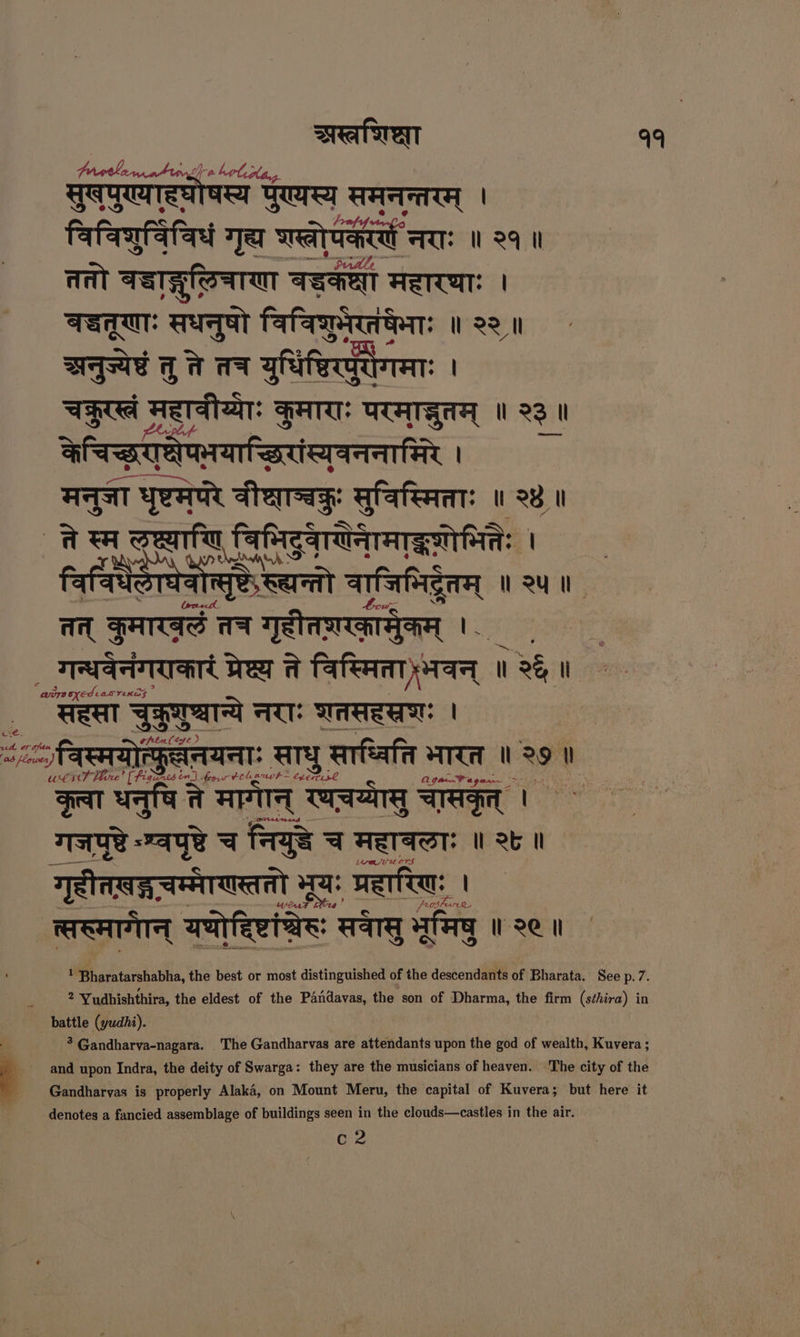 अस्त्रशिक्षा ११
सुखपुण्याहघोषस्य पुण्यस्य समनन्तरम् ।
विविशुर्विविधं गृह्य शस्त्रोपकरणं नराः ॥ २१ ॥
ततो बद्धाङ्गुलित्राणा बद्धकक्षा महारथाः ।
बद्धतूणाः सधनुषो विविशुर्भरतर्षभाः ॥ २२ ॥
अनुज्येष्ठं तु ते तत्र युधिष्ठिरपुरोगमाः ।
चक्रुरस्त्रं महावीर्य्याः कुमाराः परमाद्भुतम् ॥ २३ ॥
केचिच्छराक्षेपभयाच्छिरांस्यवननामिरे ।
मनुजा धृष्टमपरे वीक्षाञ्चक्रुः सुविस्मिताः ॥ २४ ॥
ते स्म लक्ष्याणि बिभिदुर्वाणैर्नामाङ्कशोभितैः ।
विविधैर्लाघवोत्सृष्टैरुह्यन्तो वाजिभिर्द्रुतम् ॥ २५ ॥
तत् कुमारबलं तत्र गृहीतशरकार्मुकम् ।
गन्धर्वनगराकारं प्रेक्ष्य ते विस्मिताभवन् ॥ २६ ॥
सहसा चुक्रुशुश्चान्ये नराः शतसहस्रशः ।
विस्मयोत्फुल्लनयनाः साधु साध्विति भारत ॥ २७ ॥
कृत्वा धनुषि ते मार्गान् रथचर्य्यासु चासकृत् ।
गजपृष्ठे ऽश्वपृष्ठे च नियुद्धे च महाबलाः ॥ २८ ॥
गृहीतखड्गचर्म्माणस्ततो भूयः प्रहारिणः ।
त्सरुमार्गान् यथोद्दिष्टांश्चेरुः सर्वासु भूमिषु ॥ २९ ॥
1 Bharatarshabha, the best or most distinguished of the descendants of Bharata. See p. 7.
2 Yudhishthira, the eldest of the Pándavas, the son of Dharma, the firm (sthira) in
battle (yudhi).
3 Gandharva-nagara. The Gandharvas are attendants upon the god of wealth, Kuvera;
and upon Indra, the deity of Swarga: they are the musicians of heaven. The city of the
Gandharvas is properly Alaká, on Mount Meru, the capital of Kuvera; but here it
denotes a fancied assemblage of buildings seen in the clouds—castles in the air.
c 2